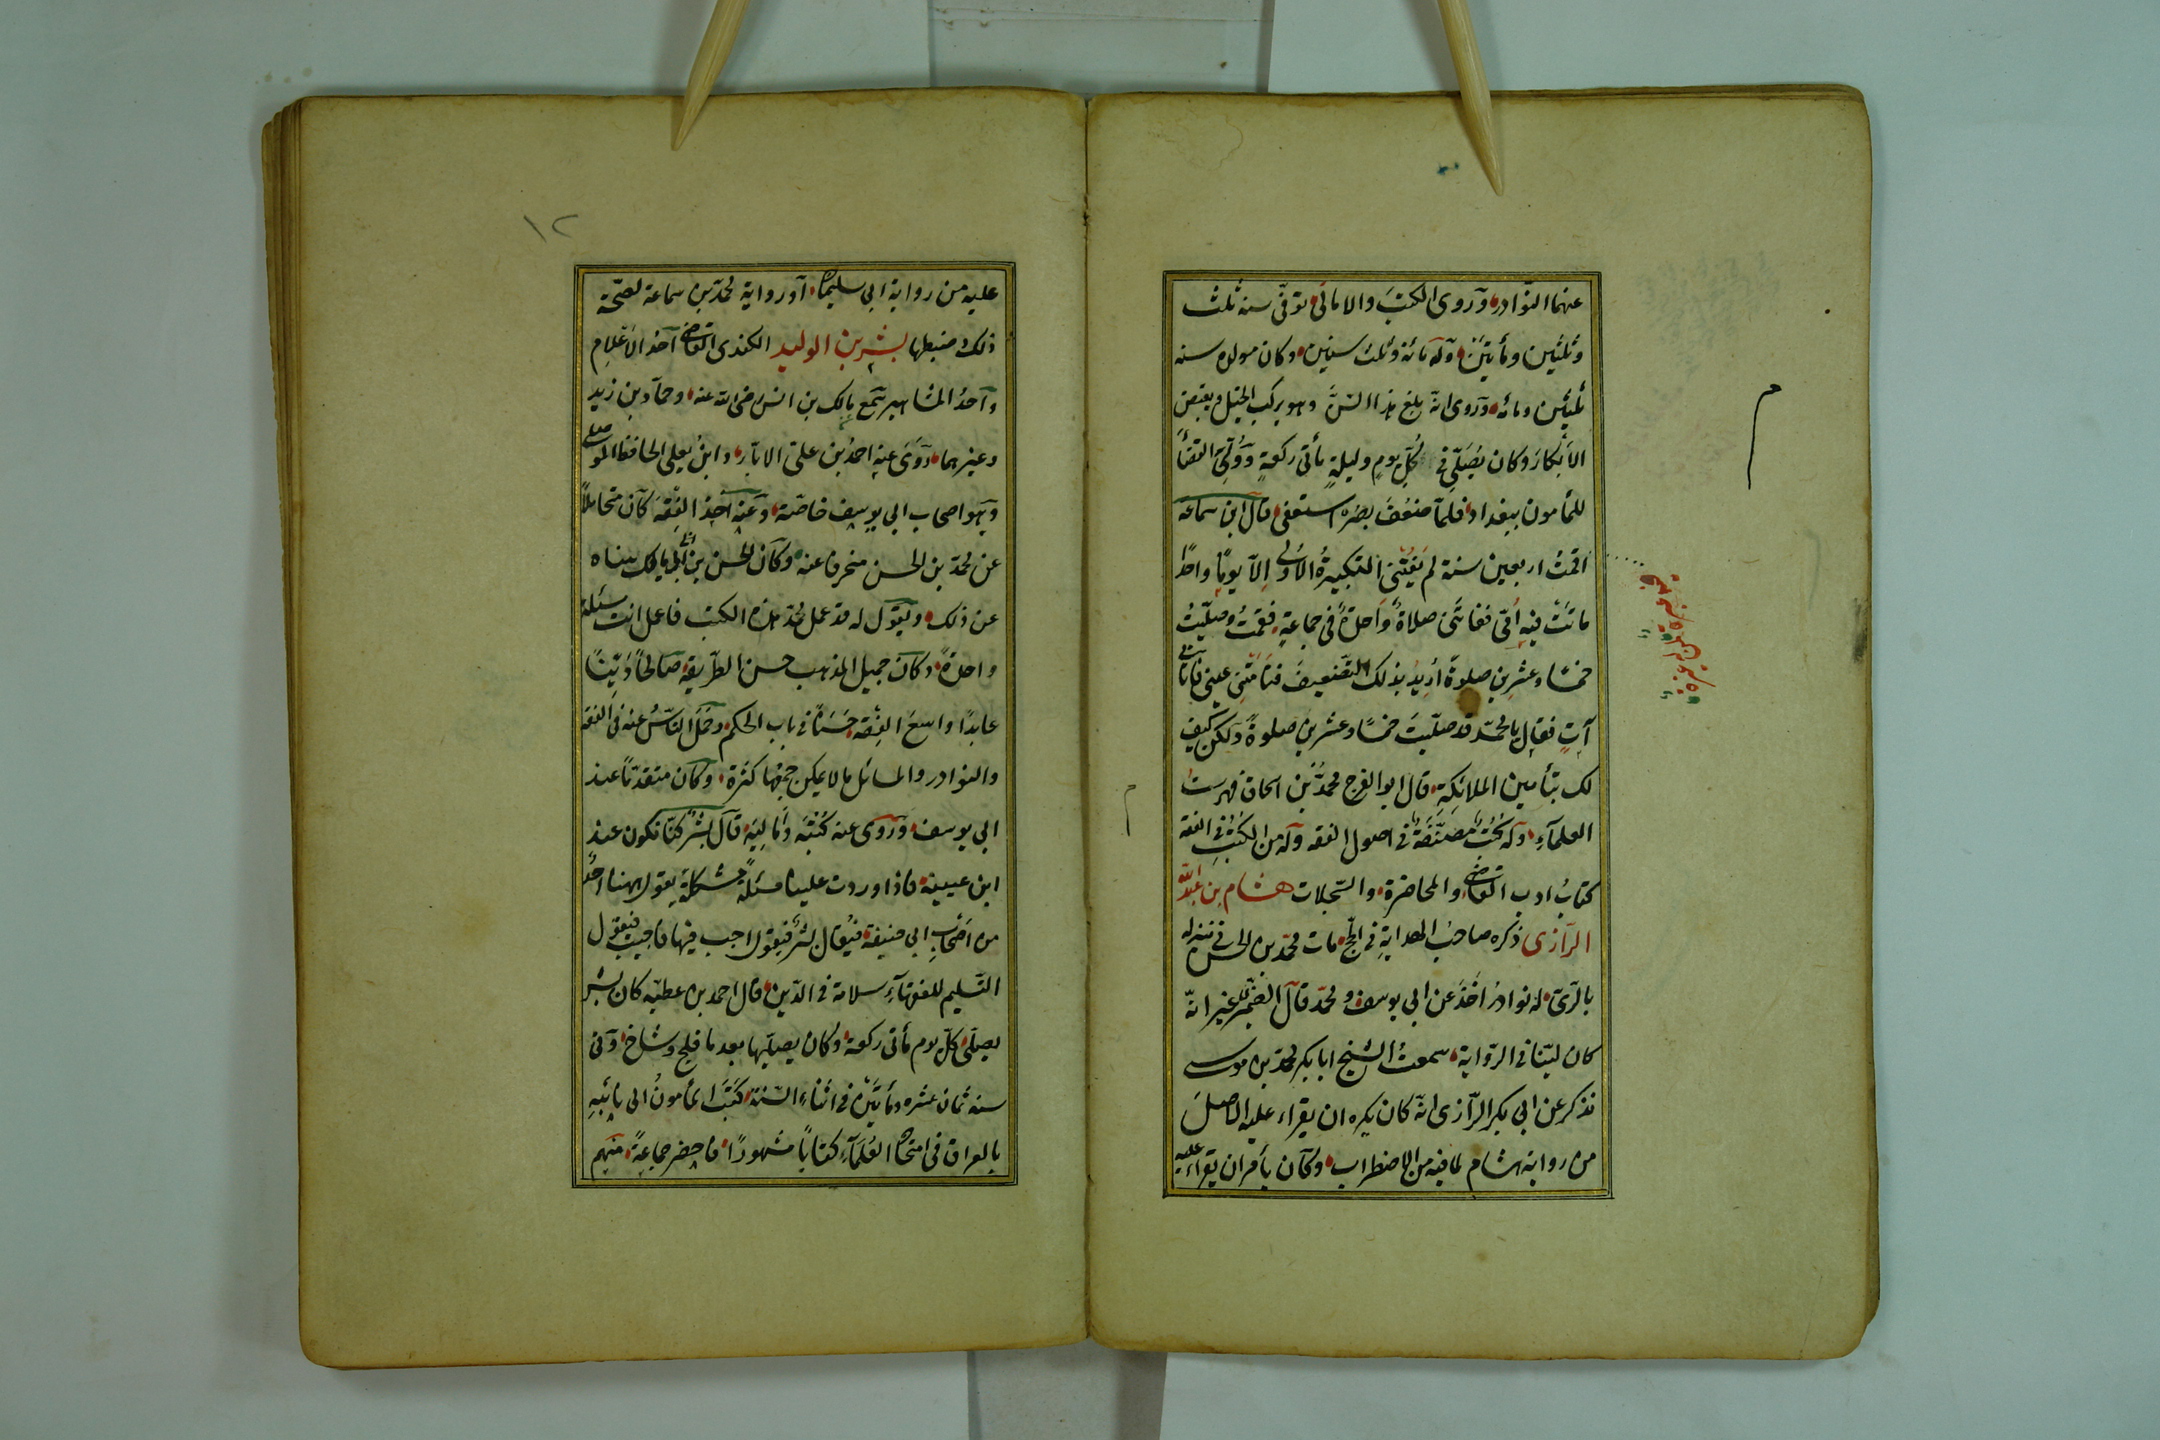 عنهما النّوادر وَرَوى الكتبَ والامالى توفّى سنه ثلث
وثلثين ومأيتين وله مائة وثلث سنين وكان مولده سنه
ثلثين ومائه ورَوى انّه بلغ هذا السّنّ وهو يركب الخيل ويفتضّ
الأبكارَ وكان يُصَلّى فى كلّ يومٍ وليلةٍ مأتى ركعةٍ وَوُلِّىَ القضأ
للمأمون ببغداد فلمّا ضَعُفَ بصره استعفى قال ابن سماعة
اقمتُ اربعين سنة لم يَفُتْنى التكبيرةُ الأولى إلّا يومًا واحدًا
ماتَتْ فيه اُمّى ففاتَتْنى صلاةٌ واحدةٌ فى جماعةٍ فقمتُ وصلّيتُ
خمسًا وعشرين صلوةً اُريدُ بذلك التّضعيفَ فنامَتْنى عينى فاتانى
آتٍ فقال يا محمّد قد صلّيتَ خمسًا وعشرين صلوةً ولكن كيف
لك بتأمين الملائكةِ قال ابو الفرج محمّدُ بن اسحاق فهرست
العلمآءِ وله كُتُبٌ مصنَّفَةٌ فى اصول الفقه وله من الكُتُبِ فى الفقه
كتابُ ادب القاضى والمحاضرة والسّجلات هشام بن عبدالله
الرّازى ذكره صاحبُ الهدايةِ فى الحجّ مات محمّد بن الحسن فى منزله
بالرّىّ له نوادرُ اخَذَ عن ابى يوسف ومحمّد قال الصّيمرىّ غير انّه
كان ليّنًا فى الرّواية سمعتُ الشيخ ابا بكر محمّد بن موسى
يذكر عن ابى بكر الرّازى انّه كان يكره ان يقراء عليه الاصلَ
من رواية هشام لما فيه من الاضطراب وكان يأمر ان يقراء عليه
١٢
عليه من رواية ابى سليمان أو رواية محمّد بن سماعة لصحّة
ذلك وضبطها بشر بن الوليد الكندى القاضى احَدُ الأعلام
وأحدُ المشاهير سمع مالك بن انس رضى الله عنه وحمّاد بن زيد
وغيرهما رَوَى عنه احمدُ بن علىّ الابّار وابنُ يعلى الحافظ الموصلى
وهو اصحاب ابى يوسف خاصّة وعنه اخذ الفِقْهَ كان متحاملًا
عن محمّد بن الحسن منحرفًا عنه وكان الحسن بن ابى مالك ينهاه
عن ذلك ويقول له قد عمل محمّد هذه الكتب فاعمل انت مسئلة
واحدةً وكان جميل المذهب حسن الطّريقة صالحًا دَيِّنًا
عابدًا واسعَ الفِقه خَشنًا فى باب الحكم وحَمَلَ النّاسُ عنه فى الفقه
والنوادر والمسائل ما لا يمكن جمعُها كثرةً وكان متقدّمًا عند
ابى يوسف ورَوى عنه كُتُبَه وأماليَه قال بشر كنّا نكون عند
ابن عيينة فاذا وردت علينا مسئلةٌ مشكلةٌ يقول ههنا احدٌ
من اصْحَابِ ابى حنيفة فيُقال بشرٌ فيقول اجب فيها فاجيب فيقول
التّسليم للفقهآءِ سلامة فى الدّين قال احمد بن عطيّه كان بشر
يصلّى كلّ يوم مأتى ركعة وكان يصلّيها بعد ما فلج وشاخ وفى
سنه ثمان عشره ومأيتين فى اثناءِ السّنة كَتَبَ المأمونُ الى نائبه
بالعراق فى امتحان العُلَمآءِ كتابًا مشهورًا فاحضر جماعةً منهم